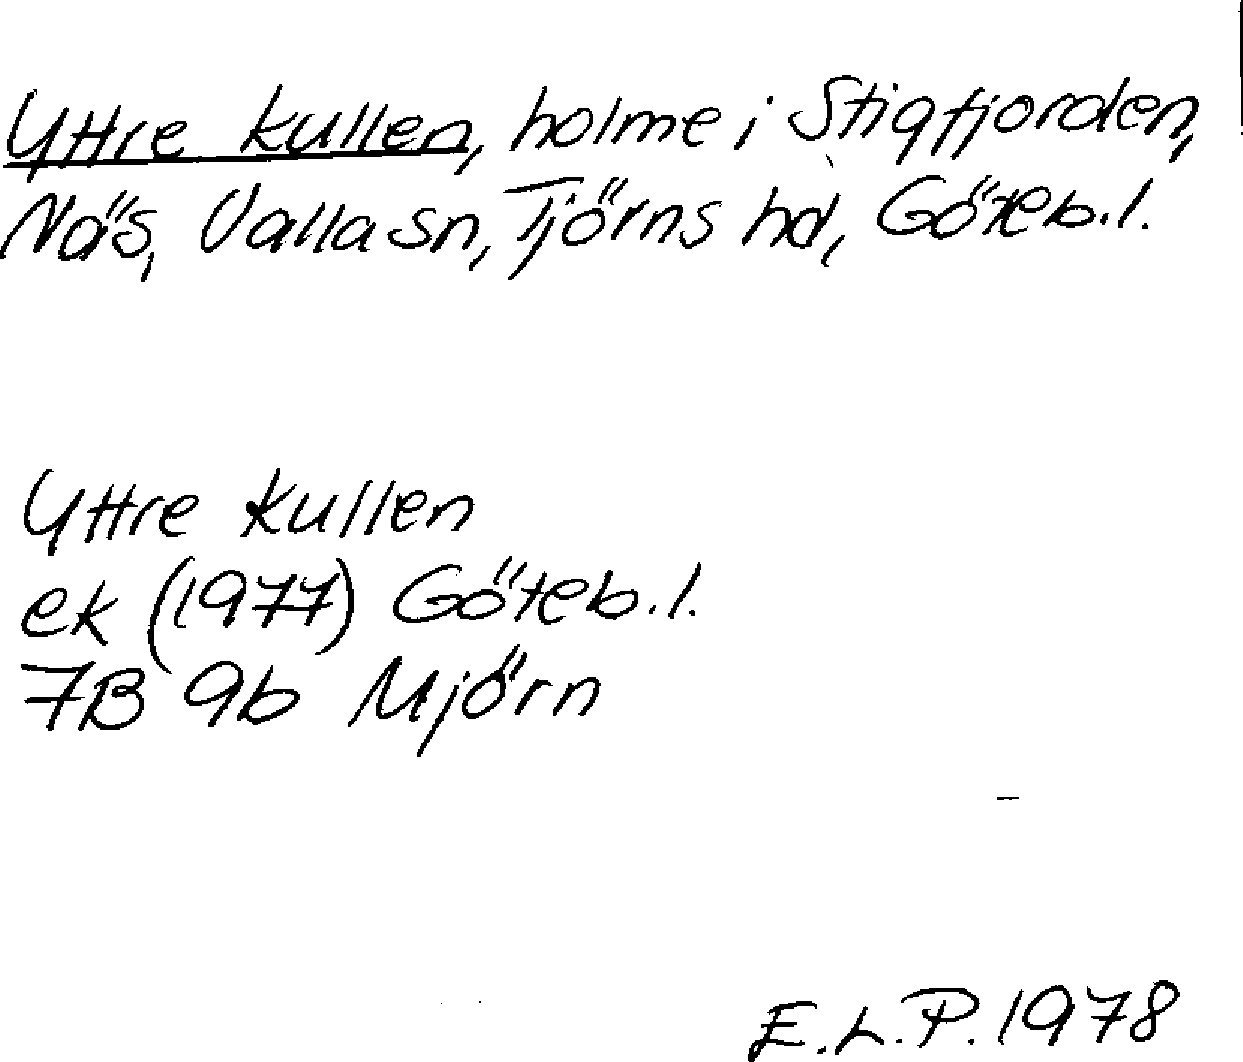 Yttre kullen, holme i Stigfjorden,
Näs, Valla sn, Tjörns hd, Göteb.l.
Yttre kullen
ek (1977) Göteb.l.
7B 9b Mjörn
E.L.P. 1978